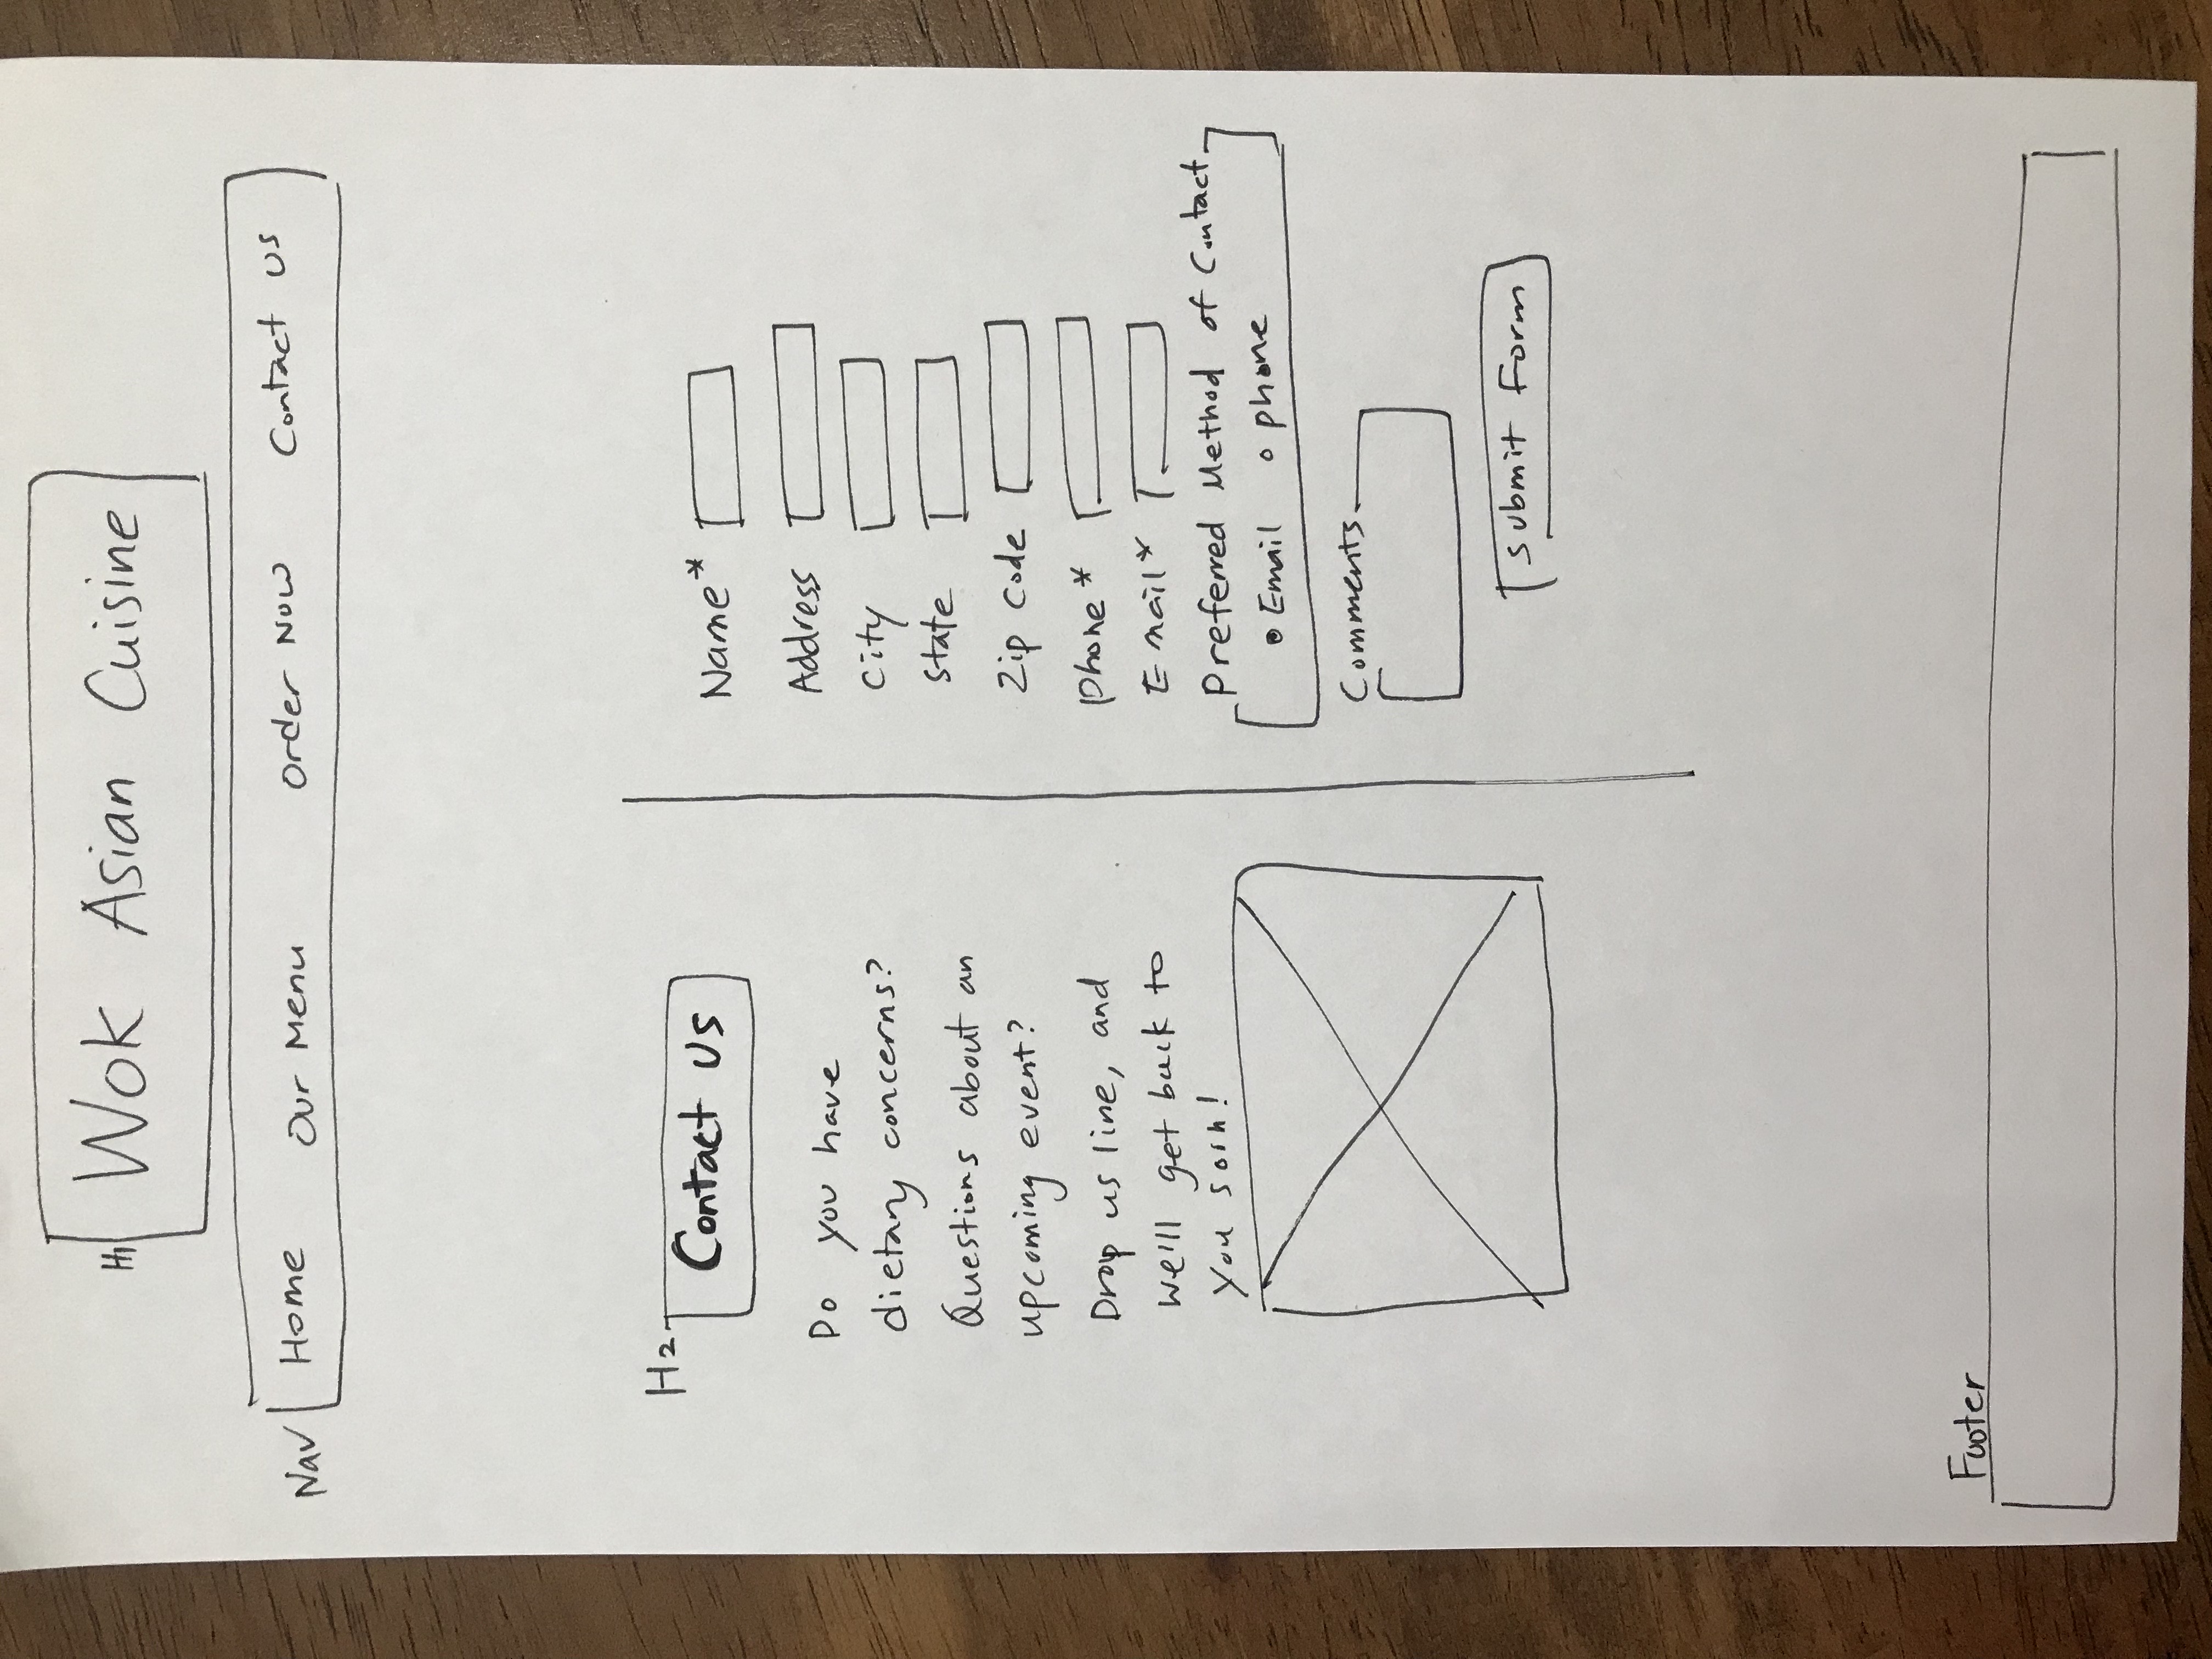 H1 Wok Asian Cuisine
Nav Home Our Menu Order Now Contact Us
H2
Contact Us
Do you have
dietary concerns?
Questions about an
upcoming event?
Drop us line, and
we'll get back to
you soon!
Name*
Address
City
State
Zip Code
Phone*
Email*
Preferred Method of Contact
Email phone
Comments
Submit Form
Footer